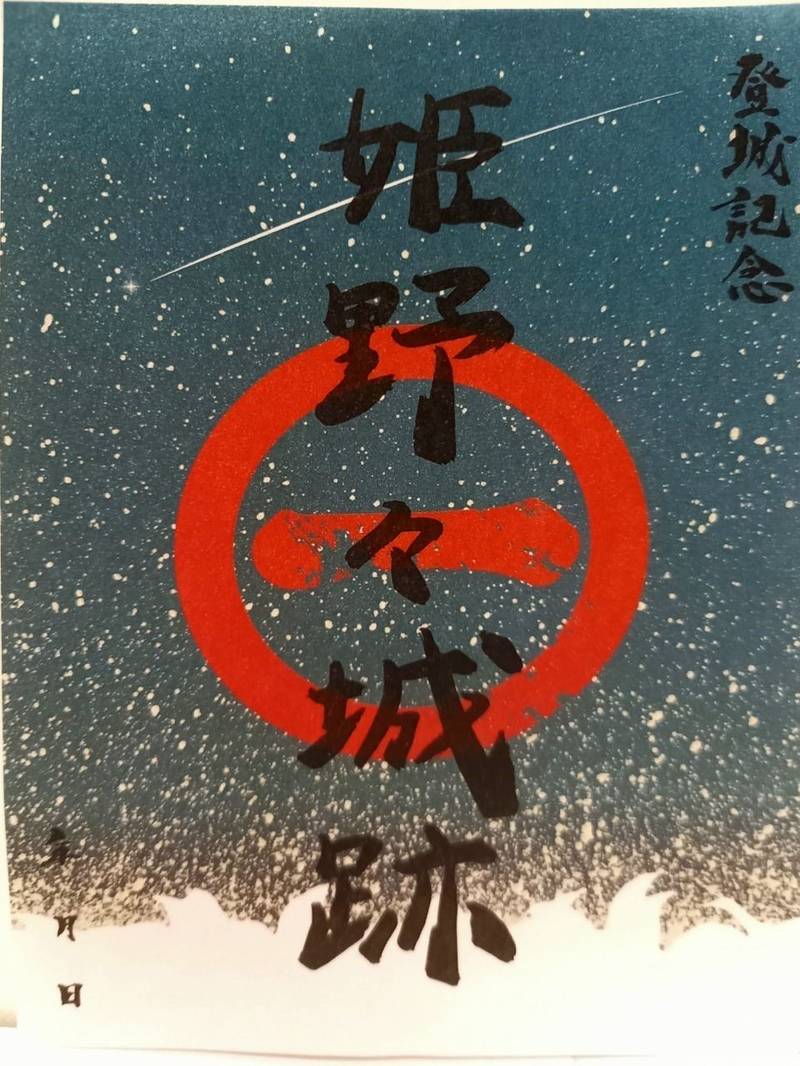 登城記念
姫野々城跡
年月日